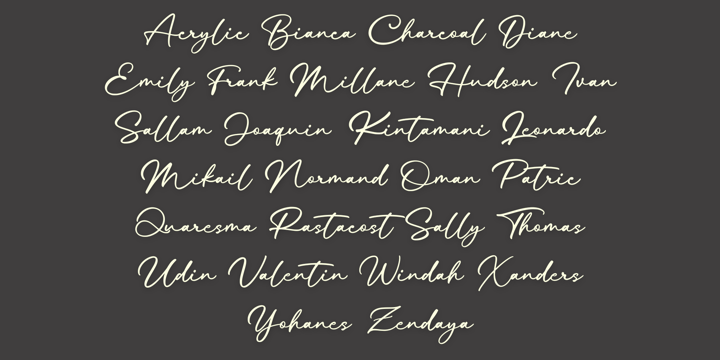 Acrylic Bianca Charcoal Diane
Emily Frank Millane Hudson Ivan
Sallam Joaquin Kintamani Leonardo
Mikail Normand Oman Patric
Quaresma Rastacost Sally Thomas
Udin Valentin Windah Xanders
Yohanes Zendaya